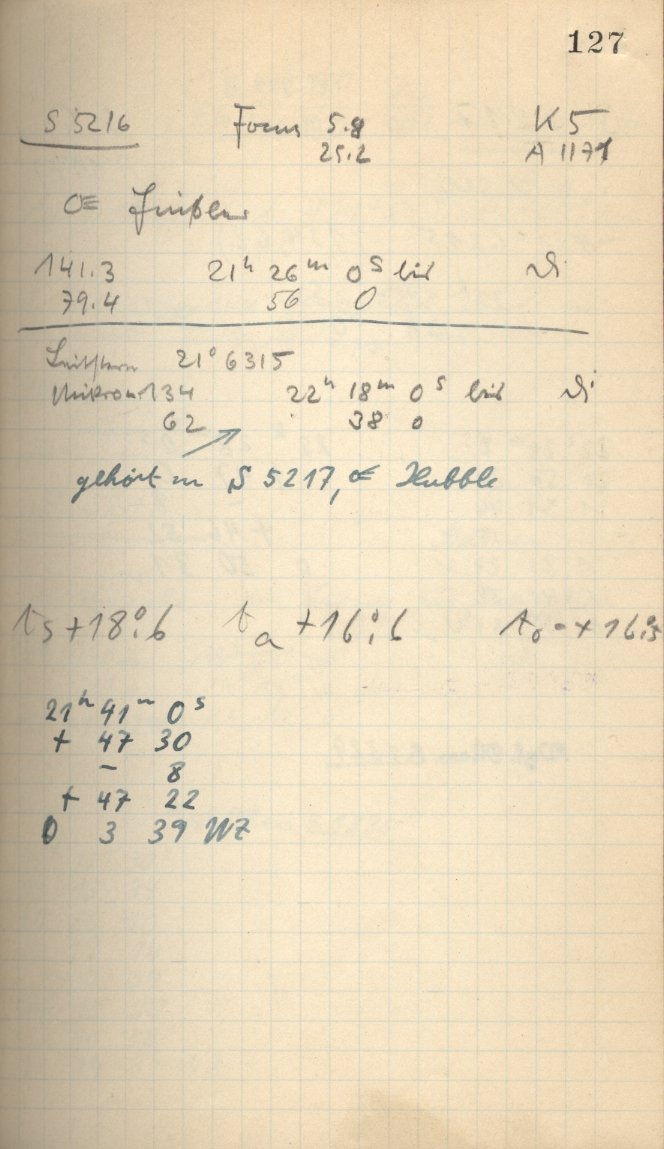 127
S 5216 Focus 5.8 K 5
25.2 A 1171
141.3 21h 26m 0s bis
79.4 56 0
Leitstern 21° 6315
Mikrom 134 22h 18m 0s bis
62 38 0
gehört zu S 5217, Hubble
ts +18°.6 ta +16°.6 to = +16°.5
21h 41m 0s
+ 47 30
- 8
+ 47 22
0 3 39 WZ